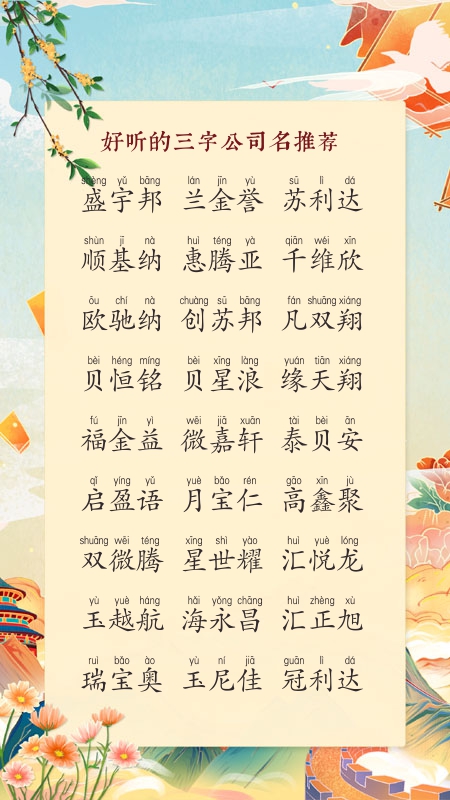 好听的三字公司名推荐
shèng yǔ bāng lán jīn yù sū lì dá
盛宇邦 兰金誉 苏利达
shùn jī nà huì téng yà qiān wéi xīn
顺基纳 惠腾亚 千维欣
ōu chí nà chuàng sū bāng fán shuāng xiáng
欧驰纳 创苏邦 凡双翔
bèi héng míng bèi xīng làng yuán tiān xiáng
贝恒铭 贝星浪 缘天翔
fú jīn yì wēi jiā xuān tài bèi ān
福金益 微嘉轩 泰贝安
qǐ yíng yǔ yuè bǎo rén gāo xīn jù
启盈语 月宝仁 高鑫聚
shuāng wēi téng xīng shì yào huì yuè lóng
双微腾 星世耀 汇悦龙
yù yuè háng hǎi yǒng chāng huì zhèng xù
玉越航 海永昌 汇正旭
ruì bǎo ào yù ní jiā guān lì dá
瑞宝奥 玉尼佳 冠利达